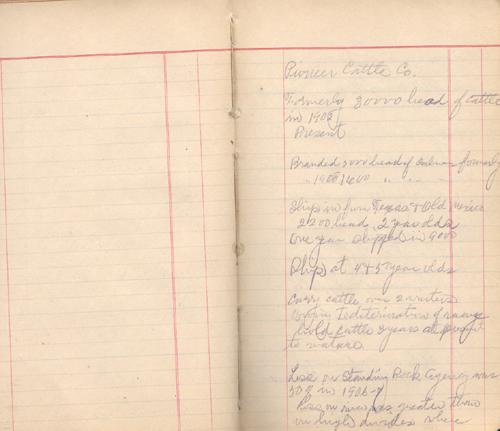 Pioneer Cattle Co.
Formerly 30000 head of cattle
in 1905
Present
Branded 3000 head of calves formerly
" 1908 1600 " "
Ship in from Texas & Old Mexico
2200 head 2 year olds
One year shipped in 9000
Ship at 4 & 5 year olds
Carry cattle over 2 winters
owing to deterioration of range
hold cattle 2 years
to mature
Loss on Standing Rock Agency was
50% in 1906-7
Loss on was greater than
in high divides where